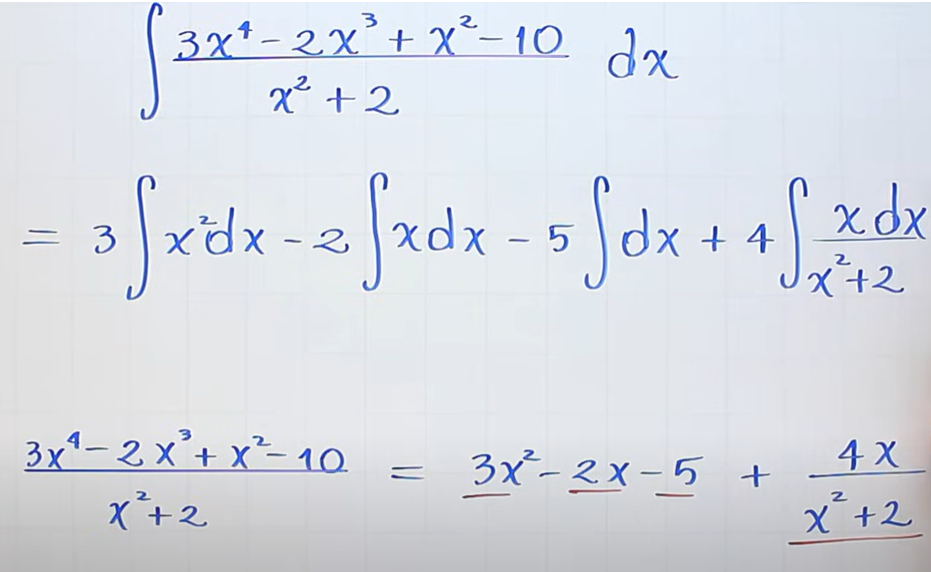 ∫ (3x⁴ - 2x³ + x² - 10)/(x² + 2) dx
= 3∫x²dx - 2∫xdx - 5∫dx + 4∫(xdx)/(x²+2)
(3x⁴ - 2x³ + x² - 10)/(x² + 2) = 3x² - 2x - 5 + (4x)/(x² + 2)